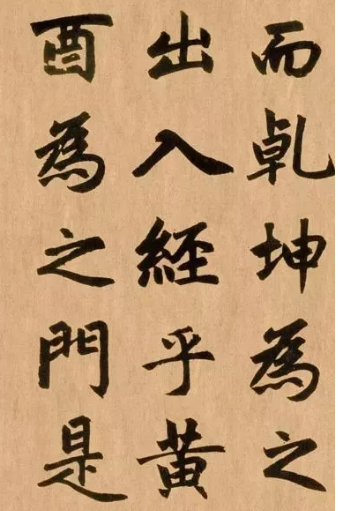 而乾坤為之
出入經乎黃
酉為之門是